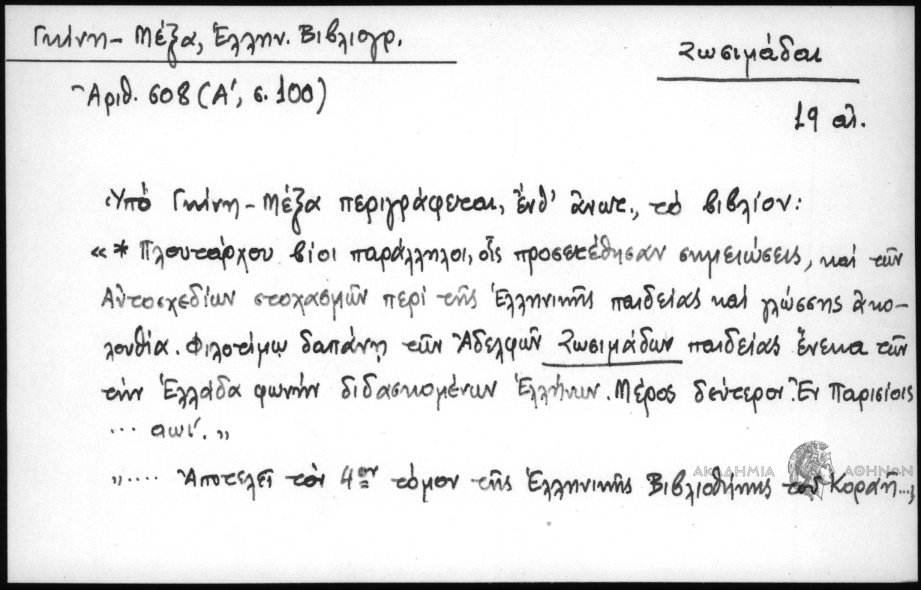 Γκίνη - Μέξα, Ἑλλην. Βιβλιογρ.
Ζωσιμάδαι
Ἀριθ. 608 (Α', σ. 100)
19 αἰ.
Ὑπὸ Γκίνη - Μέξα περιγράφεται, ἔνθ' ἀνωτ., τὸ βιβλίον:
«* Πλουτάρχου βίοι παράλληλοι, οἷς προσετέθησαν σημειώσεις, καὶ τῶν
Αὐτοσχεδίων στοχασμῶν περὶ τῆς Ἑλληνικῆς παιδείας καὶ γλώσσης ἀκο-
λουθία. Φιλοτίμῳ δαπάνῃ τῶν Ἀδελφῶν Ζωσιμάδων παιδείας ἕνεκα τῶν
τὴν Ἑλλάδα φωνὴν διδασκομένων Ἑλλήνων. Μέρος δεύτερον. Ἐν Παρισίοις
... αωι'. »
».... Ἀποτελεῖ τὸν 4ον τόμον τῆς Ἑλληνικῆς Βιβλιοθήκης τοῦ Κοραῆ...,
ΑΚΑΔΗΜΙΑ ΑΘΗΝΩΝ